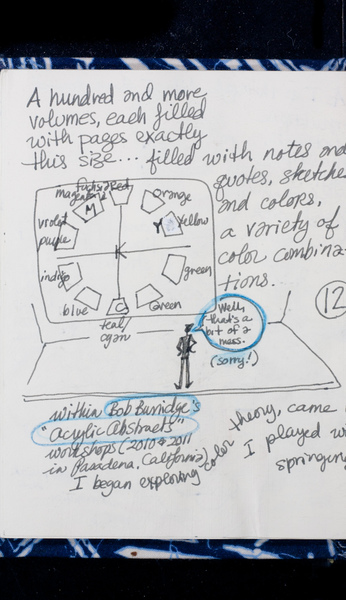 A hundred and more
volumes, each filled
with pages exactly
this size... filled with notes and
quotes, sketches
and colors,
a variety of
color combina-
tions.
fuchsia red
magenta
M
orange
Y
yellow
violet
purple
K
indigo
green
blue
C
green
teal/
cyan
12
Well,
that's a
bit of a
mess.
(sorry!)
within Bob Burridge's
"Acrylic Abstracts"
workshops (2010 & 2011
in Pasadena, California)
I began exploring color theory, came
I played
springing